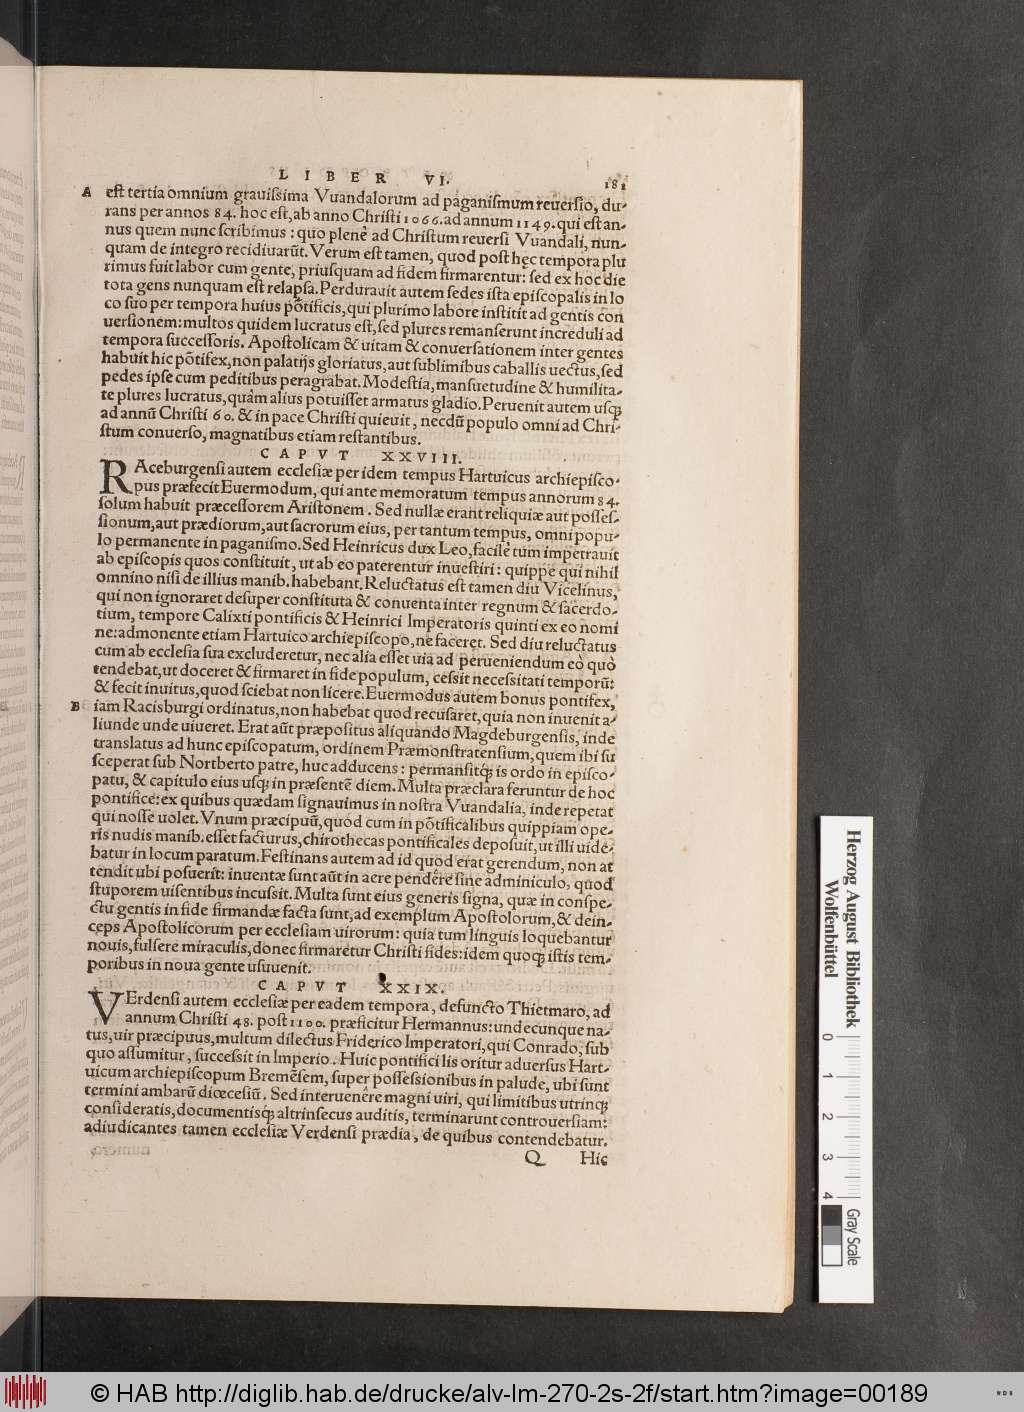 LIBER VI. 181
A est tertia omnium grauissima Vuandalorum ad paganismum reuersio, du-
rans per annos 84. hoc est, ab anno Christi 1066. ad annum 1149. qui est an-
nus quem nunc scribimus: quo plenè ad Christum reuersi Vuandali, nun-
quam de integro recidiuarũt. Verum est tamen, quod post hęc tempora plu
rimus fuit labor cum gente, priusquam ad fidem firmarentur: sed ex hoc die
tota gens nunquam est relapsa. Perdurauit autem sedes ista episcopalis in lo
co suo per tempora huius põtificis, qui plurimo labore institit ad gentis con
uersionem: multos quidem lucratus est, sed plures remanserunt increduli ad
tempora successoris. Apostolicam & uitam & conuersationem inter gentes
habuit hic põtifex, non palatijs gloriatus, aut sublimibus caballis uectus, sed
pedes ipse cum peditibus peragrabat. Modestia, mansuetudine & humilita-
te plures lucratus, quàm alius potuisset armatus gladio. Peruenit autem usq́;
ad annũ Christi 60. & in pace Christi quieuit, necdũ populo omni ad Chri-
stum conuerso, magnatibus etiam restantibus.
CAPVT XXVIII.
RAceburgensi autem ecclesiæ per idem tempus Hartuicus archiepisco-
pus præfecit Euermodum, qui ante memoratum tempus annorum 84.
solum habuit præcessorem Aristonem. Sed nullæ erant reliquiæ aut posses-
sionum, aut prædiorum, aut sacrorum eius, per tantum tempus, omni popu-
lo permanente in paganismo. Sed Heinricus dux Leo, facilè tum impetrauit
ab episcopis quos constituit, ut ab eo paterentur inuestiri: quippe qui nihil
omnino nisi de illius manib. habebant. Reluctatus est tamen diu Vicelinus,
qui non ignoraret desuper constituta & conuenta inter regnum & sacerdo-
tium, tempore Calixti pontificis & Heinrici Imperatoris quinti ex eo nomi
ne: admonente etiam Hartuico archiepiscopo, ne faceret. Sed diu reluctatus
cum ab ecclesia sua excluderetur, nec alia esset uia ad perueniendum eò quò
tendebat, ut doceret & firmaret in fide populum, cessit necessitati temporũ:
& fecit inuitus, quod sciebat non licere. Euermodus autem bonus pontifex,
B iam Racisburgi ordinatus, non habebat quod recusaret, quia non inuenit a-
liunde unde uiueret. Erat aũt præpositus aliquando Magdeburgensis, inde
translatus ad hunc episcopatum, ordinem Præmonstratensium, quem ibi su
sceperat sub Nortberto patre, huc adducens: permansitq́; is ordo in episco-
patu, & capitulo eius usq́; in præsentẽ diem. Multa præclara feruntur de hoc
pontifice: ex quibus quædam signauimus in nostra Vuandalia, inde repetat
qui nosse uolet. Vnum præcipuũ, quòd cum in põtificalibus quippiam ope-
ris nudis manib. esset facturus, chirothecas pontificales deposuit, ut illi uide-
batur in locum paratum. Festinans autem ad id quod erat gerendum, non at
tendit ubi posuerit: inuentæ sunt aũt in aere pendêre sine adminiculo, quod
stuporem uisentibus incussit. Multa sunt eius generis signa, quæ in conspe-
ctu gentis in fide firmandæ facta sunt, ad exemplum Apostolorum, & dein-
ceps Apostolicorum per ecclesiam uirorum: quia tum linguis loquebantur
nouis, fulsere miraculis, donec firmaretur Christi fides: idem quoq; istis tem-
poribus in noua gente usuuenit.
CAPVT XXIX.
VErdensi autem ecclesiæ per eadem tempora, defuncto Thietmaro, ad
annum Christi 48. post 1100. præficitur Hermannus: undecunque na-
tus, uir præcipuus, multum dilectus Friderico Imperatori, qui Conrado, sub
quo assumitur, successit in Imperio. Huic pontifici lis oritur aduersus Hart-
uicum archiepiscopum Bremẽsem, super possessionibus in palude, ubi sunt
termini ambarũ diœcesiũ. Sed interuenêre magni uiri, qui limitibus utrinq;
consideratis, documentisq́; altrinsecus auditis, terminarunt controuersiam:
adiudicantes tamen ecclesiæ Verdensi prædia, de quibus contendebatur.
Q Hic
Herzog August Bibliothek
Wolfenbüttel
0 1 2 3 4
Gray Scale
© HAB http://diglib.hab.de/drucke/alv-lm-270-2s-2f/start.htm?image=00189